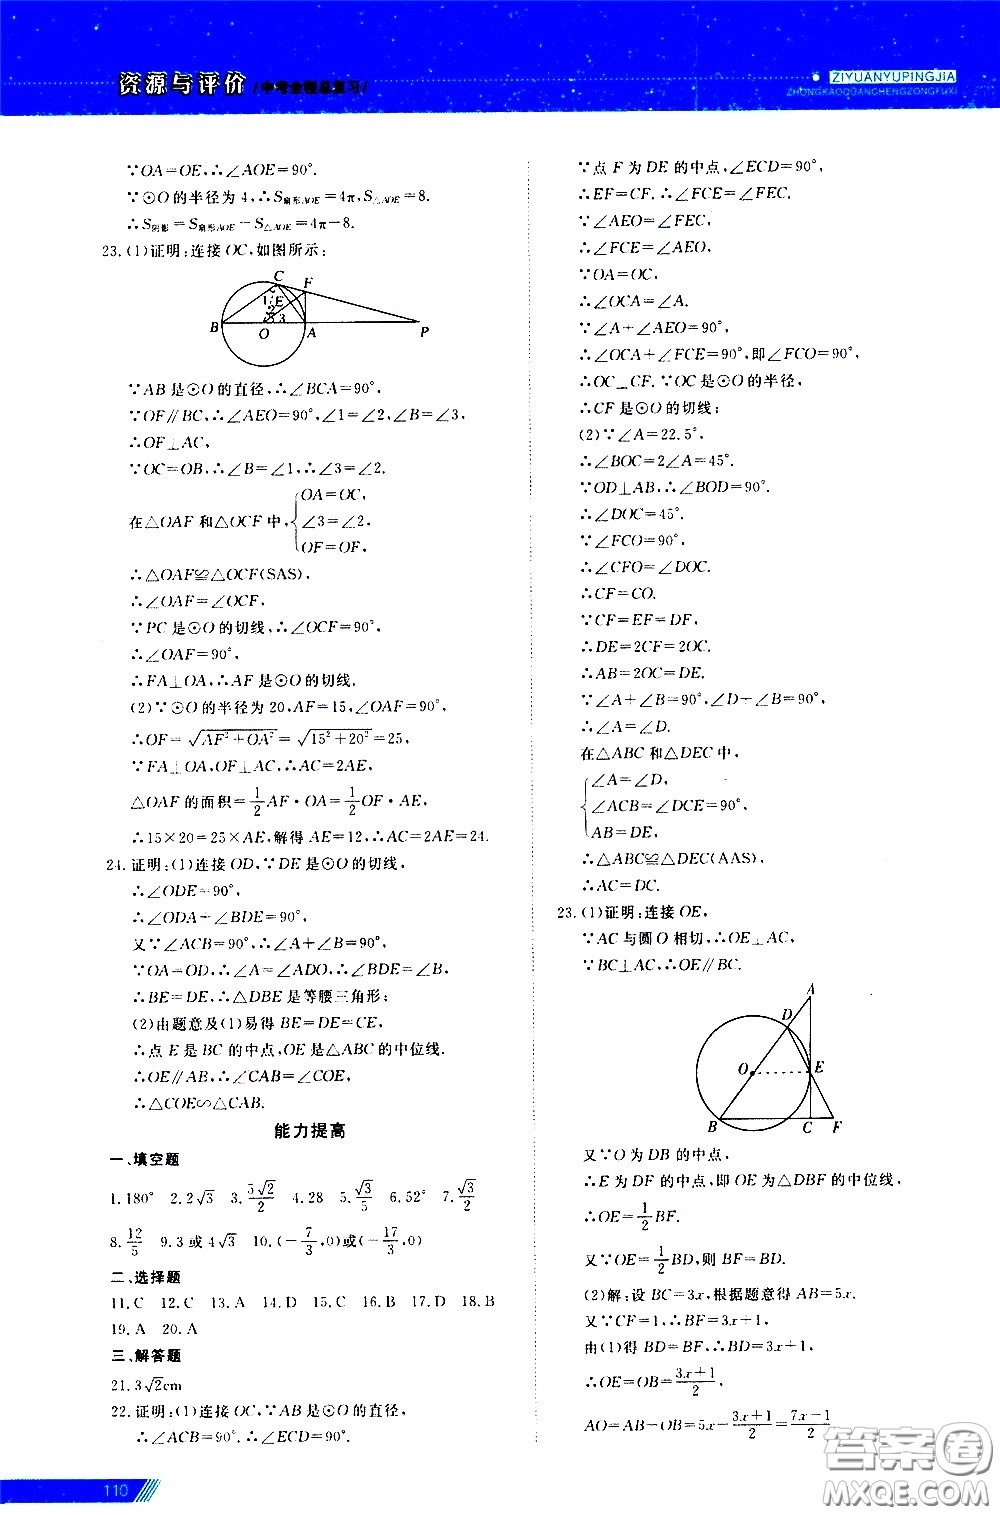 资源与评价 /中考全程总复习/
ZIYUANYUPINGJIA
ZHONGKAOQUANCHENGZONGFUXI
∵OA=OE,∴∠AOE=90°.
∵⊙O的半径为4,∴S扇形AOE=4π,S△AOE=8.
∴S阴影=S扇形AOE-S△AOE=4π-8.
23.(1)证明:连接OC,如图所示:
C F
1 E
2
3
B O A P
∵AB是⊙O的直径,∴∠BCA=90°.
∵OF∥BC,∴∠AEO=90°,∠1=∠2,∠B=∠3,
∴OF⊥AC,
∵OC=OB,∴∠B=∠1,∴∠3=∠2.
在△OAF和△OCF中,{OA=OC,
∠3=∠2,
OF=OF,
∴△OAF≌△OCF(SAS),
∴∠OAF=∠OCF,
∵PC是⊙O的切线,∴∠OCF=90°,
∴∠OAF=90°,
∴FA⊥OA,∴AF是⊙O的切线.
(2)∵⊙O的半径为20,AF=15,∠OAF=90°,
∴OF=√(AF²+OA²)=√(15²+20²)=25,
∵FA⊥OA,OF⊥AC,∴AC=2AE,
△OAF的面积=1/2 AF·OA=1/2 OF·AE,
∴15×20=25×AE,解得AE=12,∴AC=2AE=24.
24.证明:(1)连接OD,∵DE是⊙O的切线,
∴∠ODE=90°,
∴∠ODA+∠BDE=90°,
又∵∠ACB=90°,∴∠A+∠B=90°,
∵OA=OD,∴∠A=∠ADO,∴∠BDE=∠B,
∴BE=DE,∴△DBE是等腰三角形;
(2)由题意及(1)易得BE=DE=CE,
∴点E是BC的中点,OE是△ABC的中位线.
∴OE∥AB,∴∠CAB=∠COE,
∴△COE∽△CAB.
能力提高
一、填空题
1.180° 2.2√3 3.5√2/2 4.28 5.√3/5 6.52° 7.√3/2
8.12/5 9.3或4√3 10.(-7/3,0)或(-17/3,0)
二、选择题
11.C 12.C 13.A 14.D 15.C 16.B 17.D 18.B
19.A 20.A
三、解答题
21.3√2cm
22.证明:(1)连接OC,∵AB是⊙O的直径,
∴∠ACB=90°.∴∠ECD=90°.
∵点F为DE的中点,∠ECD=90°,
∴EF=CF.∴∠FCE=∠FEC.
∵∠AEO=∠FEC,
∴∠FCE=∠AEO,
∵OA=OC,
∴∠OCA=∠A.
∵∠A+∠AEO=90°,
∴∠OCA+∠FCE=90°,即∠FCO=90°,
∴OC⊥CF.∵OC是⊙O的半径,
∴CF是⊙O的切线;
(2)∵∠A=22.5°,
∴∠BOC=2∠A=45°.
∵OD⊥AB,∴∠BOD=90°.
∴∠DOC=45°.
∵∠FCO=90°,
∴∠CFO=∠DOC.
∴CF=CO.
∵CF=EF=DF,
∴DE=2CF=2OC.
∴AB=2OC=DE.
∵∠A+∠B=90°,∠D+∠B=90°,
∴∠A=∠D.
在△ABC和△DEC中,
{∠A=∠D,
∠ACB=∠DCE=90°,
AB=DE,
∴△ABC≌△DEC(AAS),
∴AC=DC.
23.(1)证明:连接OE,
∵AC与圆O相切,∴OE⊥AC,
∵BC⊥AC,∴OE∥BC.
A
D
O E
B C F
又∵O为DB的中点,
∴E为DF的中点,即OE为△DBF的中位线,
∴OE=1/2 BF.
又∵OE=1/2 BD,则BF=BD.
(2)解:设BC=3x,根据题意得AB=5x.
又∵CF=1,∴BF=3x+1,
由(1)得BD=BF,∴BD=3x+1,
∴OE=OB=(3x+1)/2,
AO=AB-OB=5x-(3x+1)/2=(7x-1)/2
110
答案圈
MXQE.COM